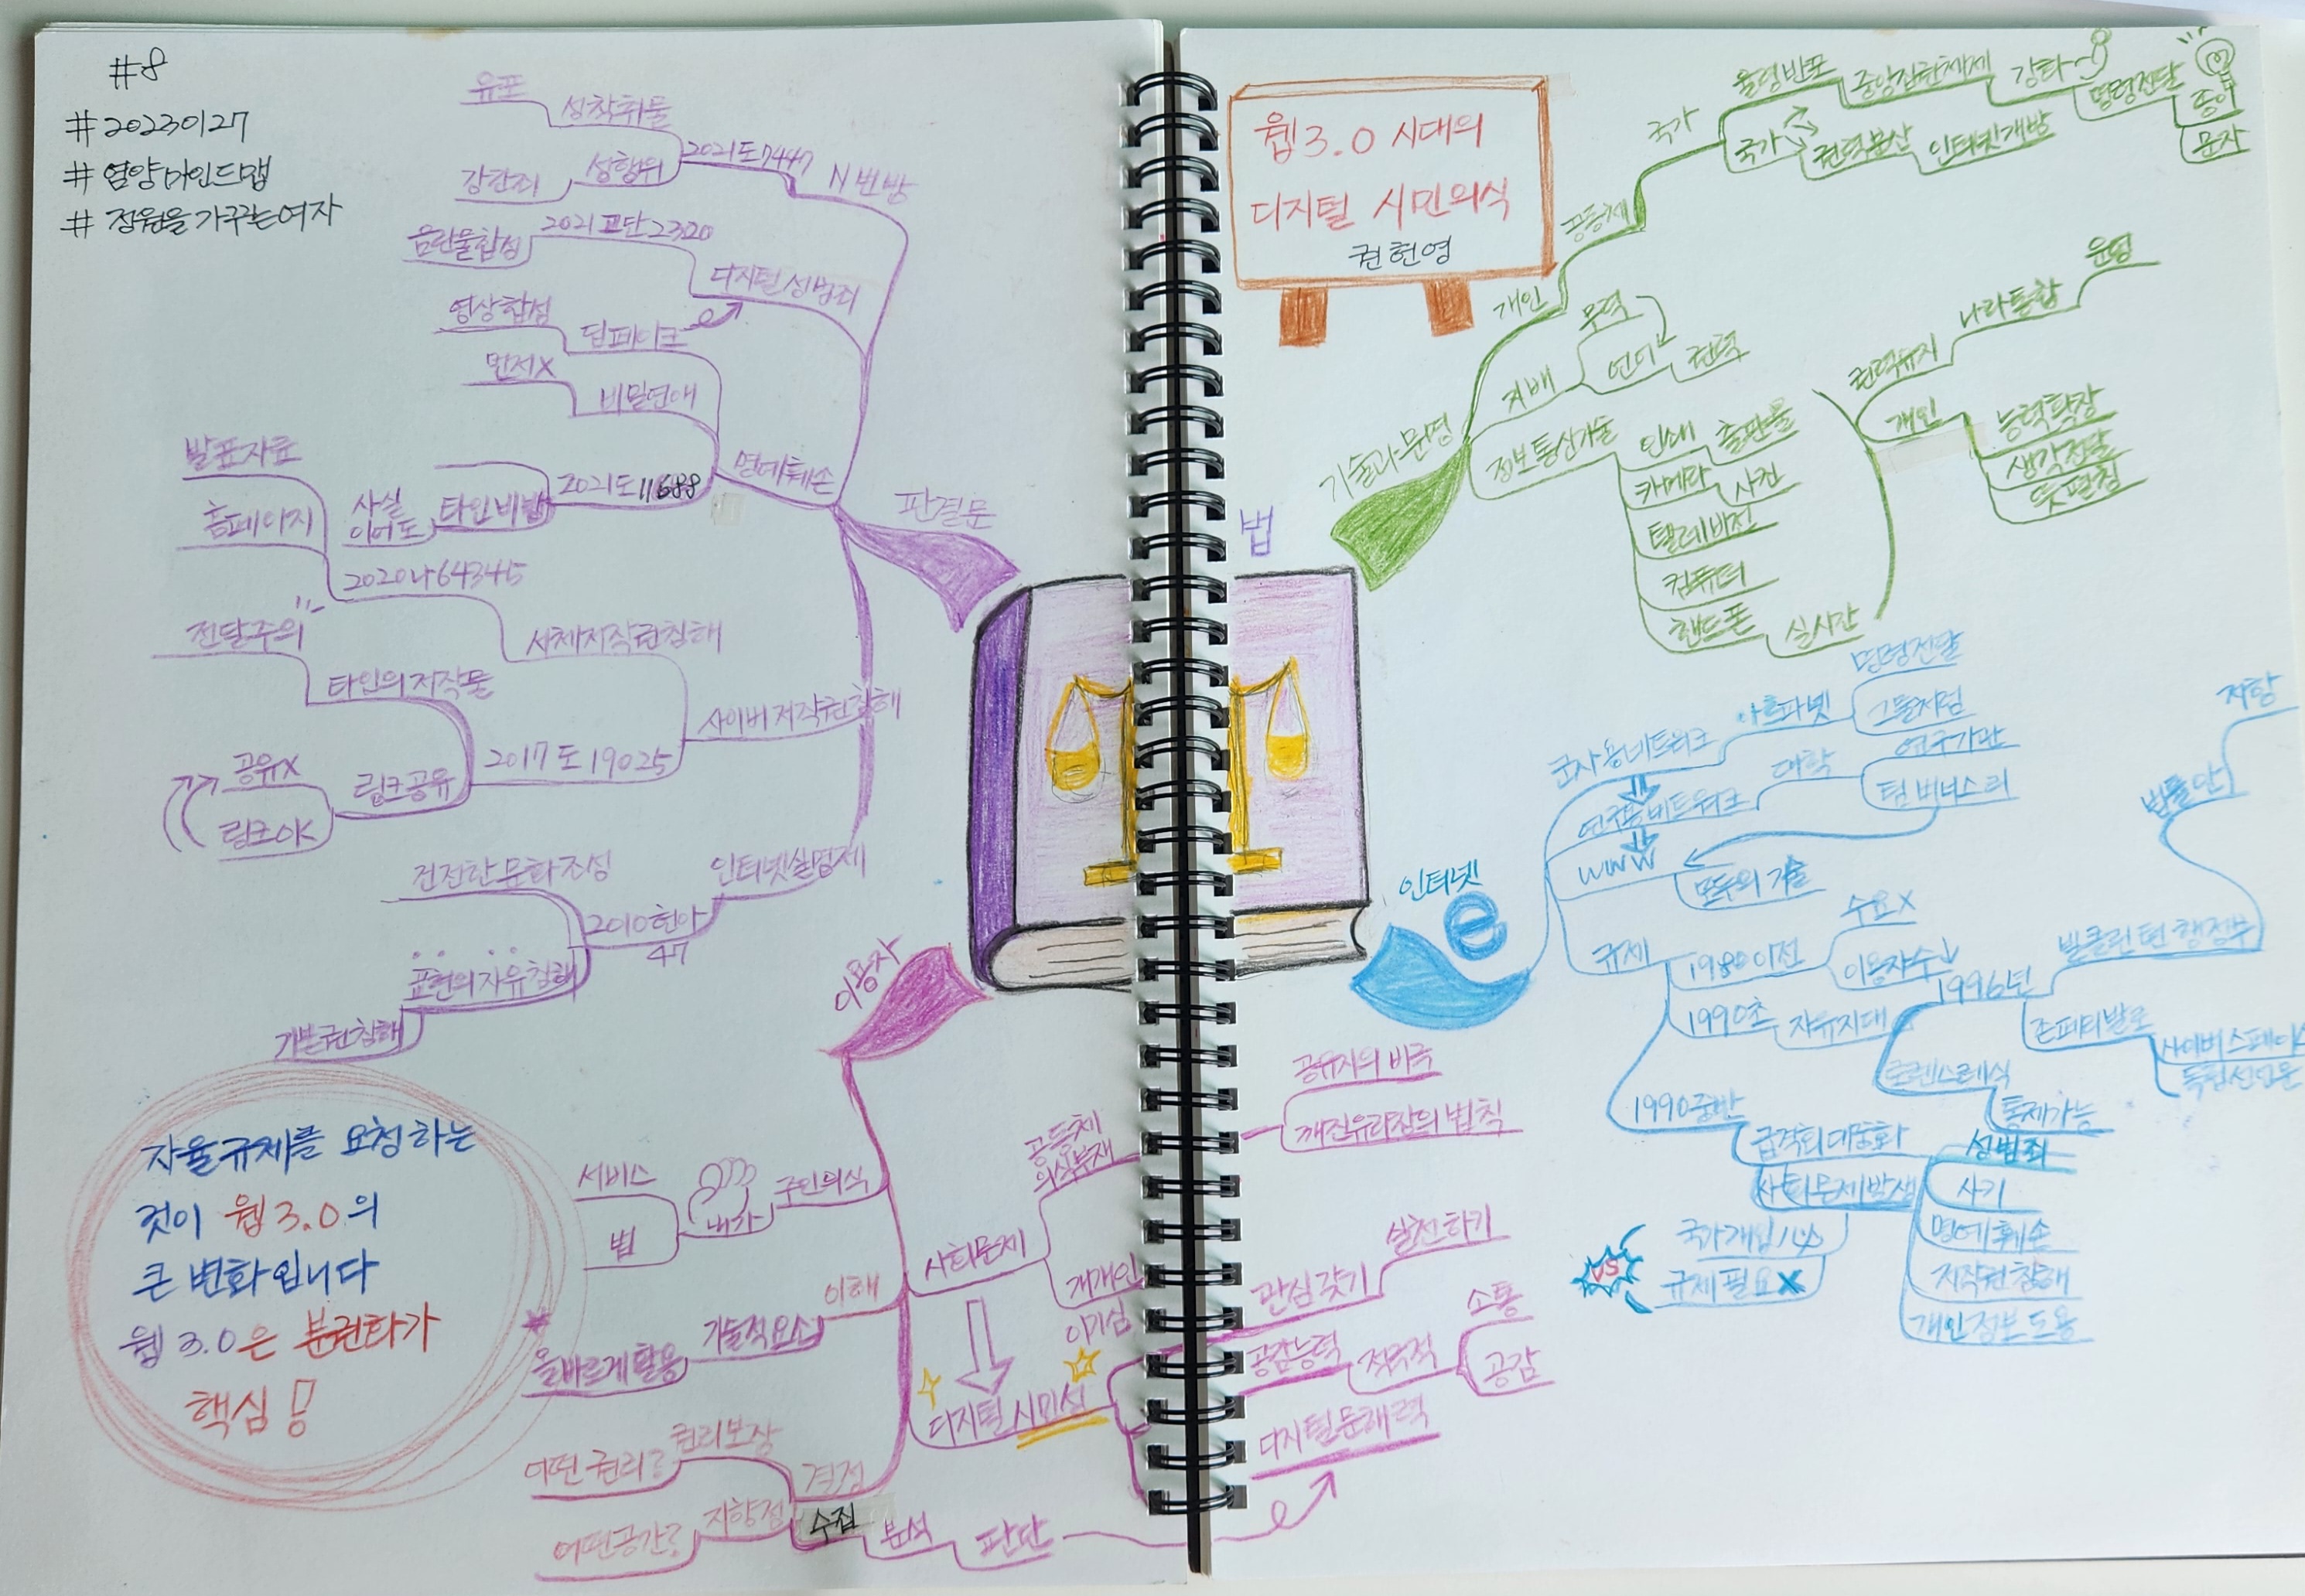 #8
#20230127
#염양마인드맵
#정원을가꾸는여자
웹3.0 시대의
디지털 시민의식
권헌영
법
기술과 문명
개인
공동체
국가
율령반포
중앙집권체제
강화
명령전달
종이
문자
국가
권력분산
인터넷개방
지배
무력
언어
권력
정보통신기술
인쇄
출판물
카메라
사진
텔레비전
컴퓨터
핸드폰
실시간
권력유지
나라통합
운영
개인
능력확장
생각전달
뜻펼침
인터넷
군사용네트워크
아르파넷
명령전달
그물처럼
연구용네트워크
대학
연구기관
팀 버너스리
WWW
모두의 기술
규제
1980이전
수요X
이용자수↓
1990초
자유지대
1990중반
급격히 대중화
사회문제발생
성범죄
사기
명예훼손
저작권침해
개인정보도용
국가개입
VS
규제필요X
1996년
빌클린턴 행정부
법률안
저항
존페리발로
사이버스페이스
독립선언문
로렌스레식
통제가능
이용자
주인의식
내가
서비스
법
이해
기술적요소
올바르게활용
결정
권리보장
어떤 권리?
지향점
어떤공간?
사회문제
공동체
의식부재
공유지의 비극
깨진유리창의 법칙
개개인
이기심
디지털 시민성
관심갖기
실천하기
공감능력
적극적
소통
공감
디지털문해력
수집
분석
판단
판결문
N번방
2021도7447
성착취물
유포
성행위
강간죄
디지털성범죄
2021고단2320
음란물합성
명예훼손
딥페이크
영상합성
비밀연애
먼저X
2021도11688
타인비방
사실
이어도
사이버저작권침해
서체저작권침해
2020나64345
발표자료
홈페이지
2017도19025
타인의저작물
전달주의
링크공유
공유X
링크OK
인터넷실명제
2010헌마
47
건전한문화조성
표현의자유침해
기본권침해
자율규제를 요청하는
것이 웹3.0의
큰 변화입니다
웹3.0은 분권화가
핵심!